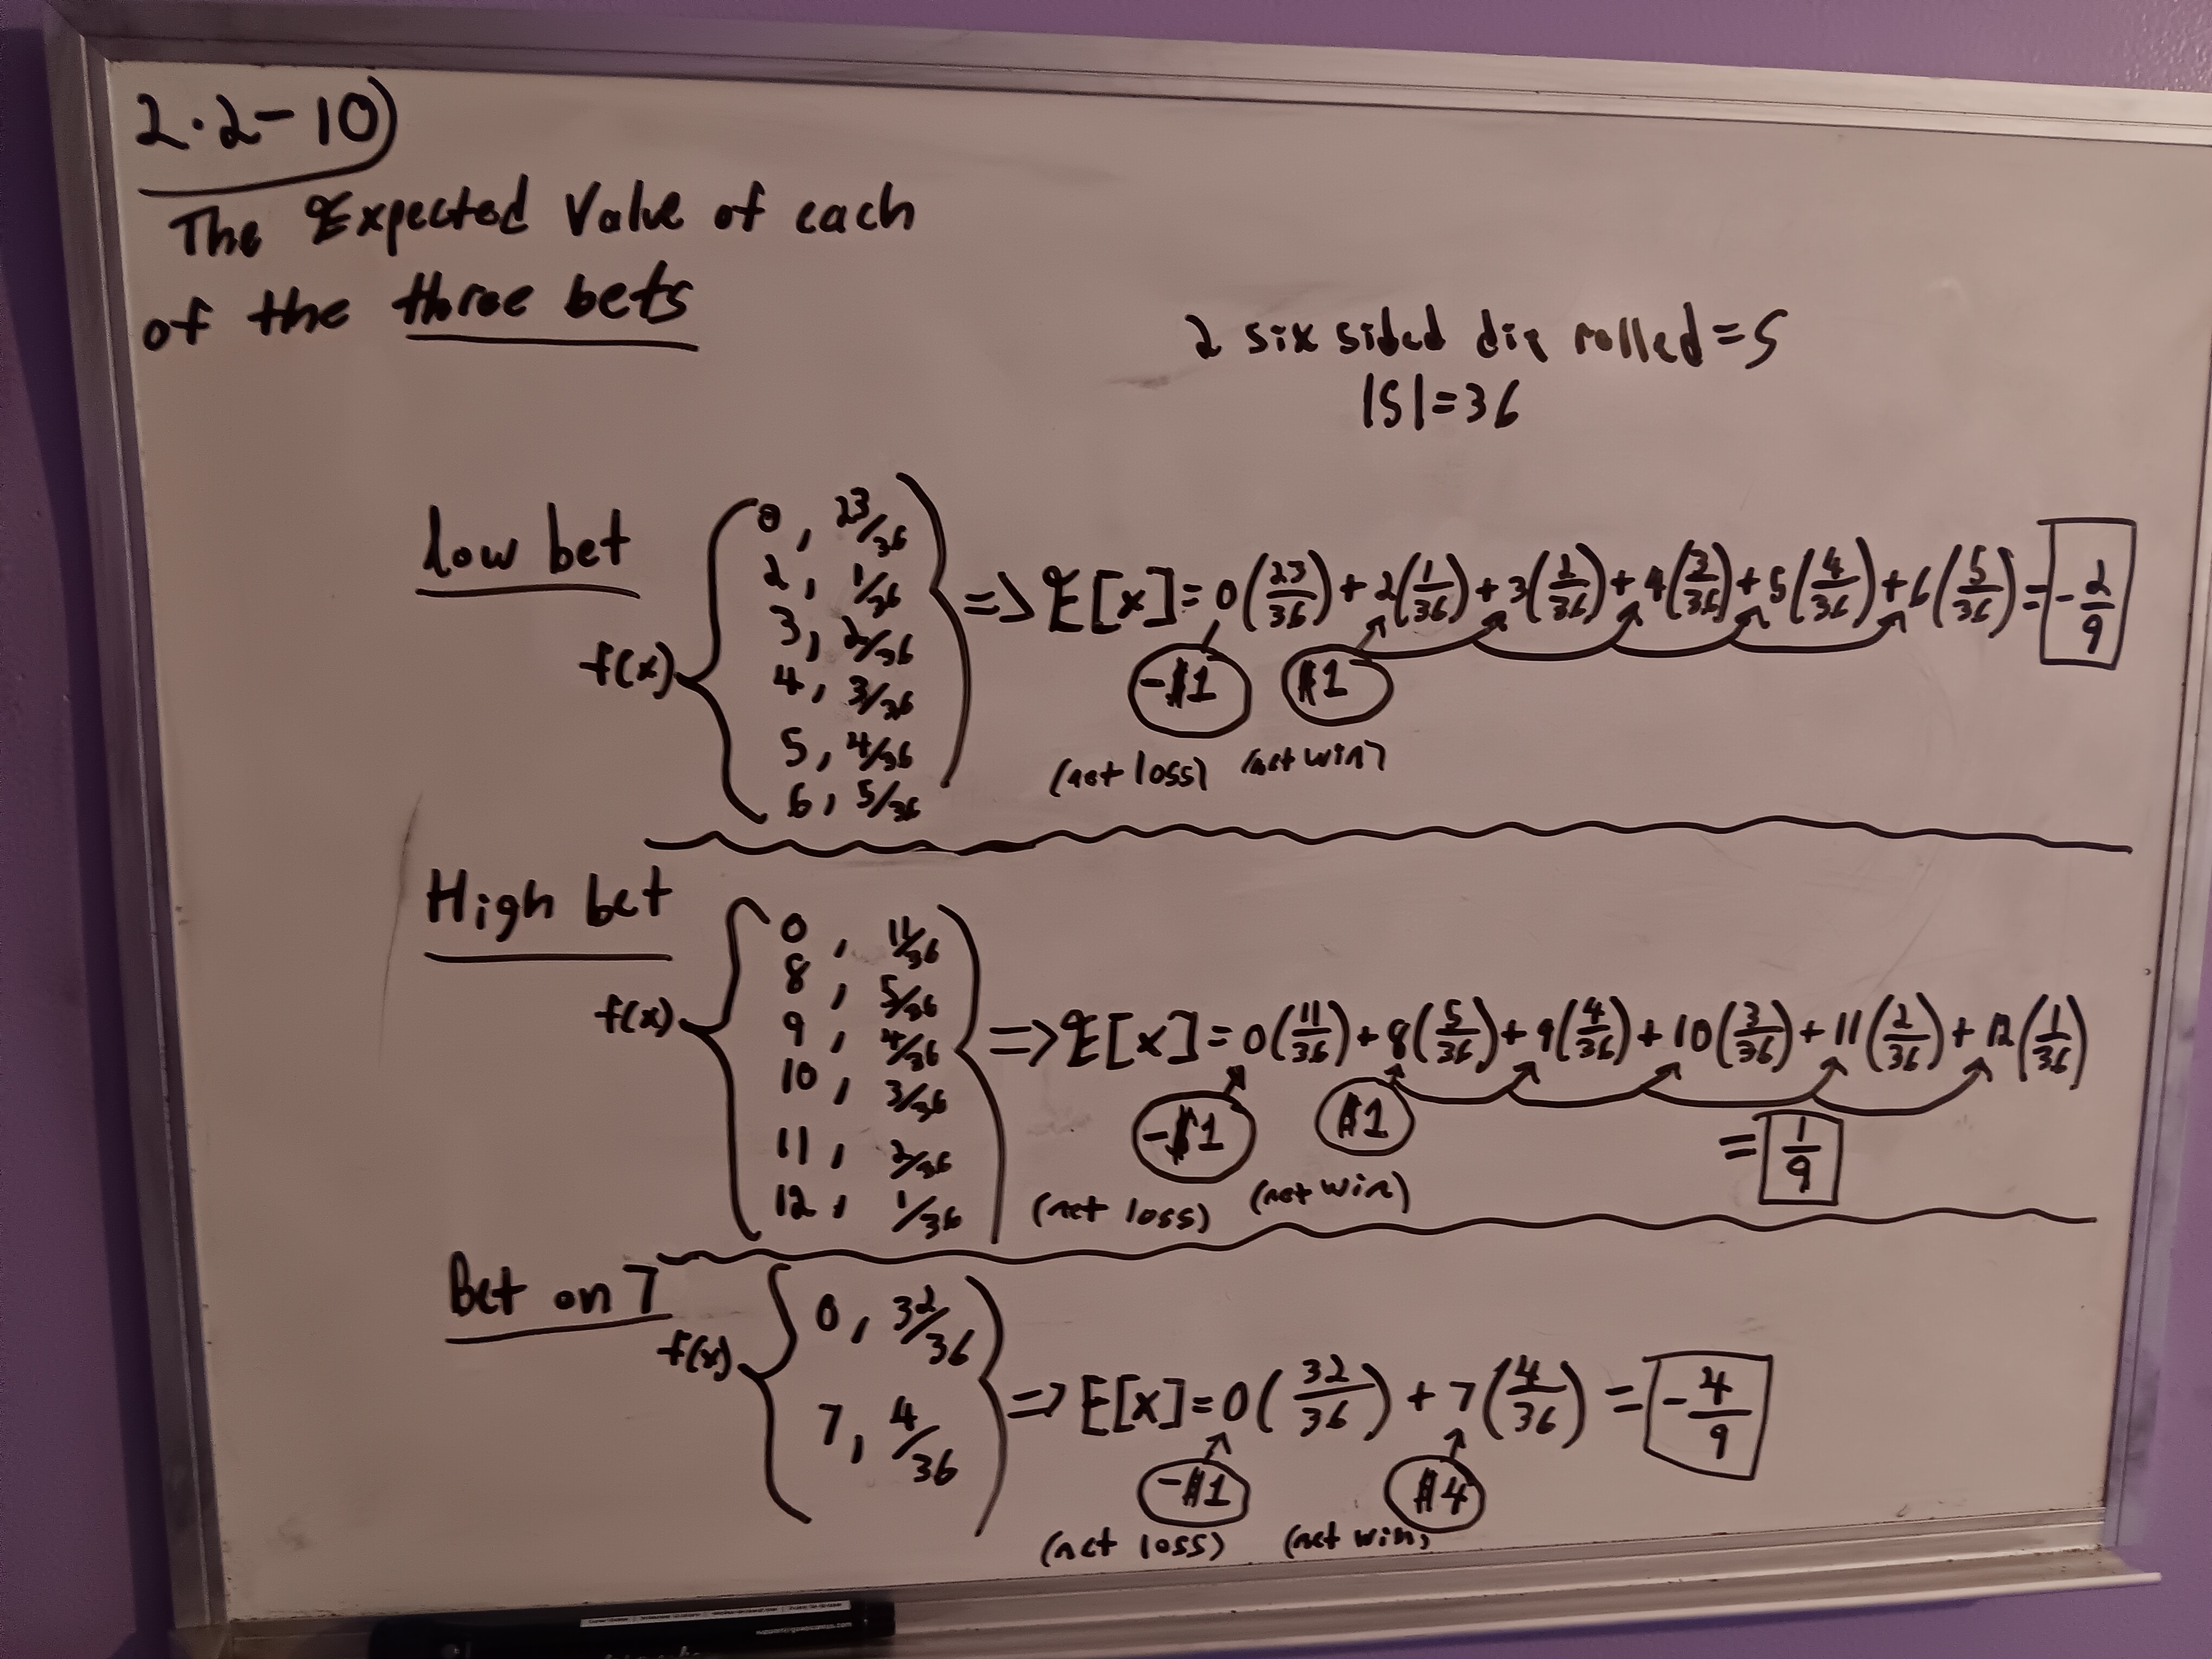 2.2-10)
The Expected Value of each
of the three bets
2 six sided die rolled = S
|S| = 36
low bet
f(x)
0, 23/36
2, 1/36
3, 2/36
4, 3/36
5, 4/36
6, 5/36
=> E[x] = 0(23/36) + 2(1/36) + 3(2/36) + 4(3/36) + 5(4/36) + 6(5/36) = -2/9
-$1 $1
(net loss) (net win)
High bet
f(x)
0, 11/36
8, 5/36
9, 4/36
10, 3/36
11, 2/36
12, 1/36
=> E[x] = 0(11/36) + 8(5/36) + 9(4/36) + 10(3/36) + 11(2/36) + 12(1/36)
-$1 $1
= 1/9
(net loss) (net win)
Bet on 7
f(x)
0, 32/36
7, 4/36
=> E[x] = 0(32/36) + 7(4/36) = -4/9
-$1 $4
(net loss) (net win)